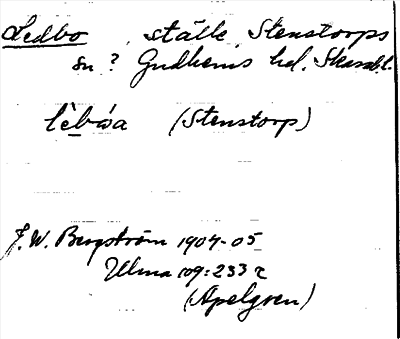 Ledbo, ställe, Stenstorps
sn? Gudhems hd. Skarabl.
(Stenstorp)
J. W. Bergström 1904-05
Ulma 109:233 r
(Apelgren)